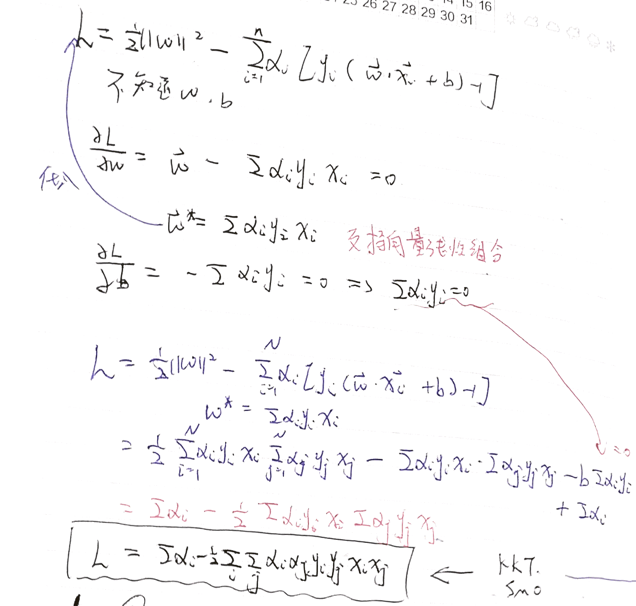 14 15 16
25 26 27 28 29 30 31
L = ½||w||² - Σ_{i=1}^{n} αᵢ [yᵢ(w⃗·x⃗ᵢ + b) - 1]
不知道 w.b
∂L/∂w = w⃗ - Σαᵢyᵢxᵢ = 0
代入
w⃗* = Σαᵢyᵢxᵢ 支持向量线性组合
∂L/∂b = -Σαᵢyᵢ = 0 => Σαᵢyᵢ = 0
L = ½||w||² - Σ_{i=1}^{N} αᵢ[yᵢ(w⃗·x⃗ᵢ + b) - 1]
w* = Σαᵢyᵢxᵢ
= ½ Σ_{i=1}^{N} αᵢyᵢxᵢ Σ_{j=1}^{N} αⱼyⱼxⱼ - Σαᵢyᵢxᵢ·Σαⱼyⱼxⱼ - bΣαᵢyᵢ = 0
+ Σαᵢ
= Σαᵢ - ½ Σαᵢyᵢxᵢ Σαⱼyⱼxⱼ
L = Σαᵢ - ½ΣᵢΣⱼ αᵢαⱼyᵢyⱼxᵢxⱼ ← KKT.
SMO